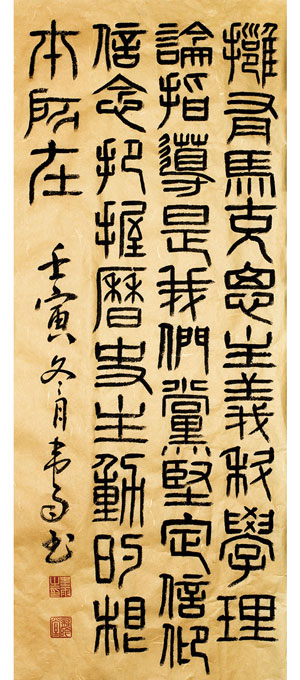 擁有馬克思主義科學理
論指導是我們黨堅定信仰
信念把握曆史主動的根
本所在
壬寅冬月韋书